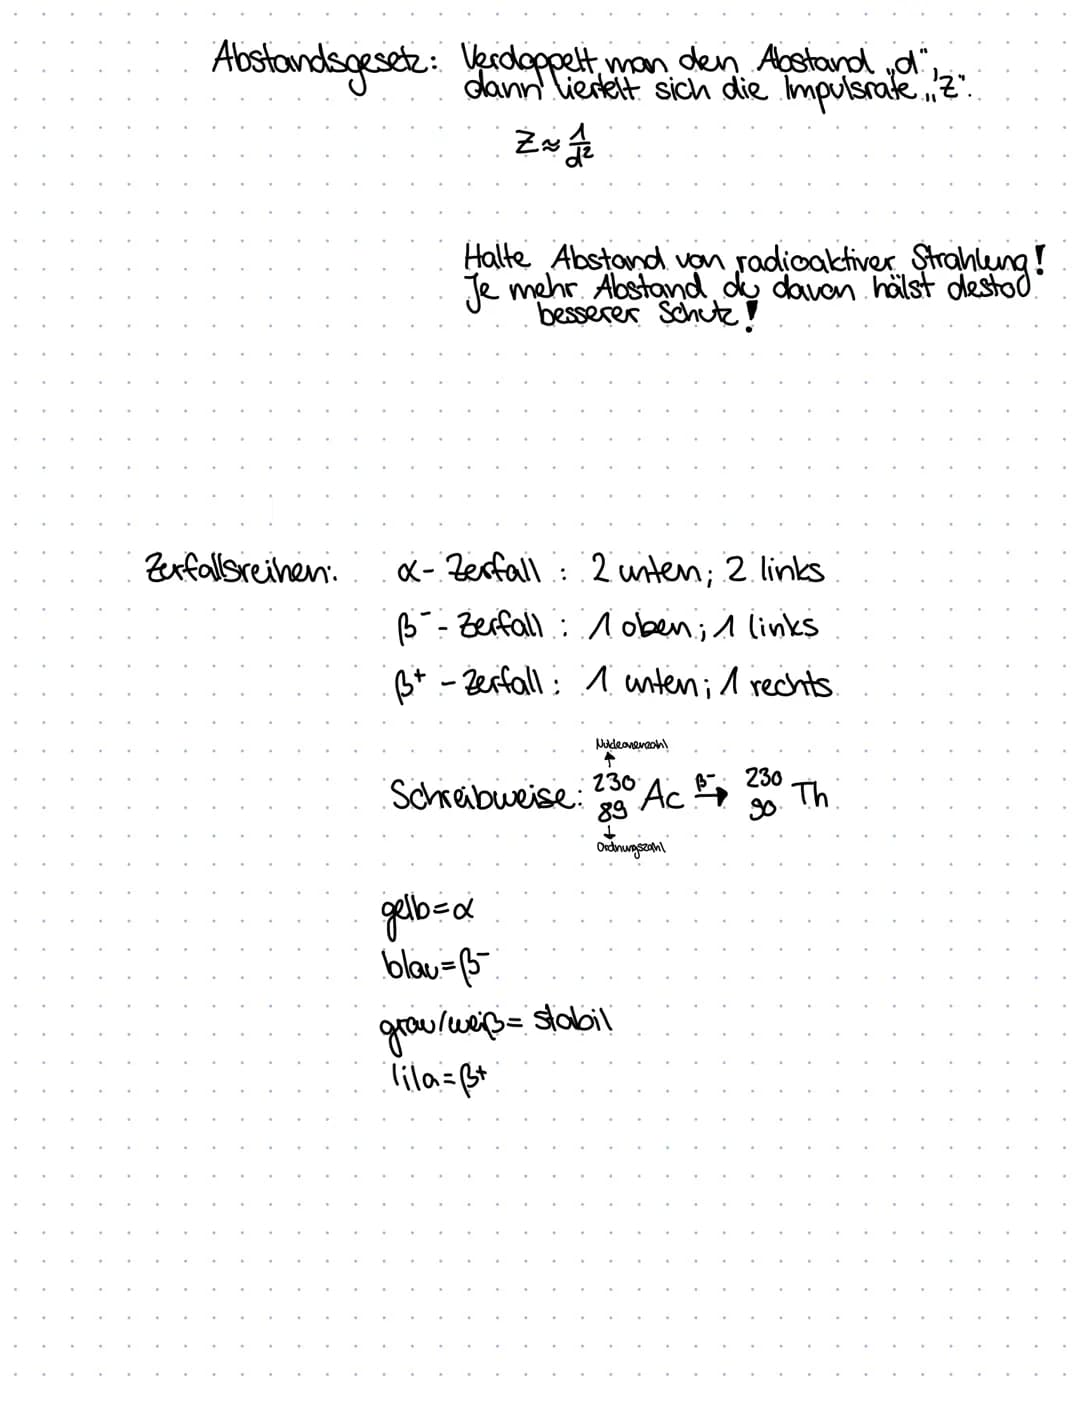 Abstandsgesetz: Verdoppelt man den Abstand „d",
dann viertelt sich die Impulsrate „Z".
Z ≈ 1/d²
Halte Abstand von radioaktiver Strahlung!
Je mehr Abstand du davon hälst desto
besserer Schutz!
Zerfallsreihen: α- Zerfall : 2 unten; 2 links
β⁻ - Zerfall : 1 oben; 1 links
β⁺ - Zerfall : 1 unten; 1 rechts
Nukleonenzahl
Schreibweise: ²³⁰₈₉ Ac β⁻→ ²³⁰₉₀ Th
Ordnungszahl
gelb=α
blau=β⁻
grau/weiß= stabil
lila=β⁺